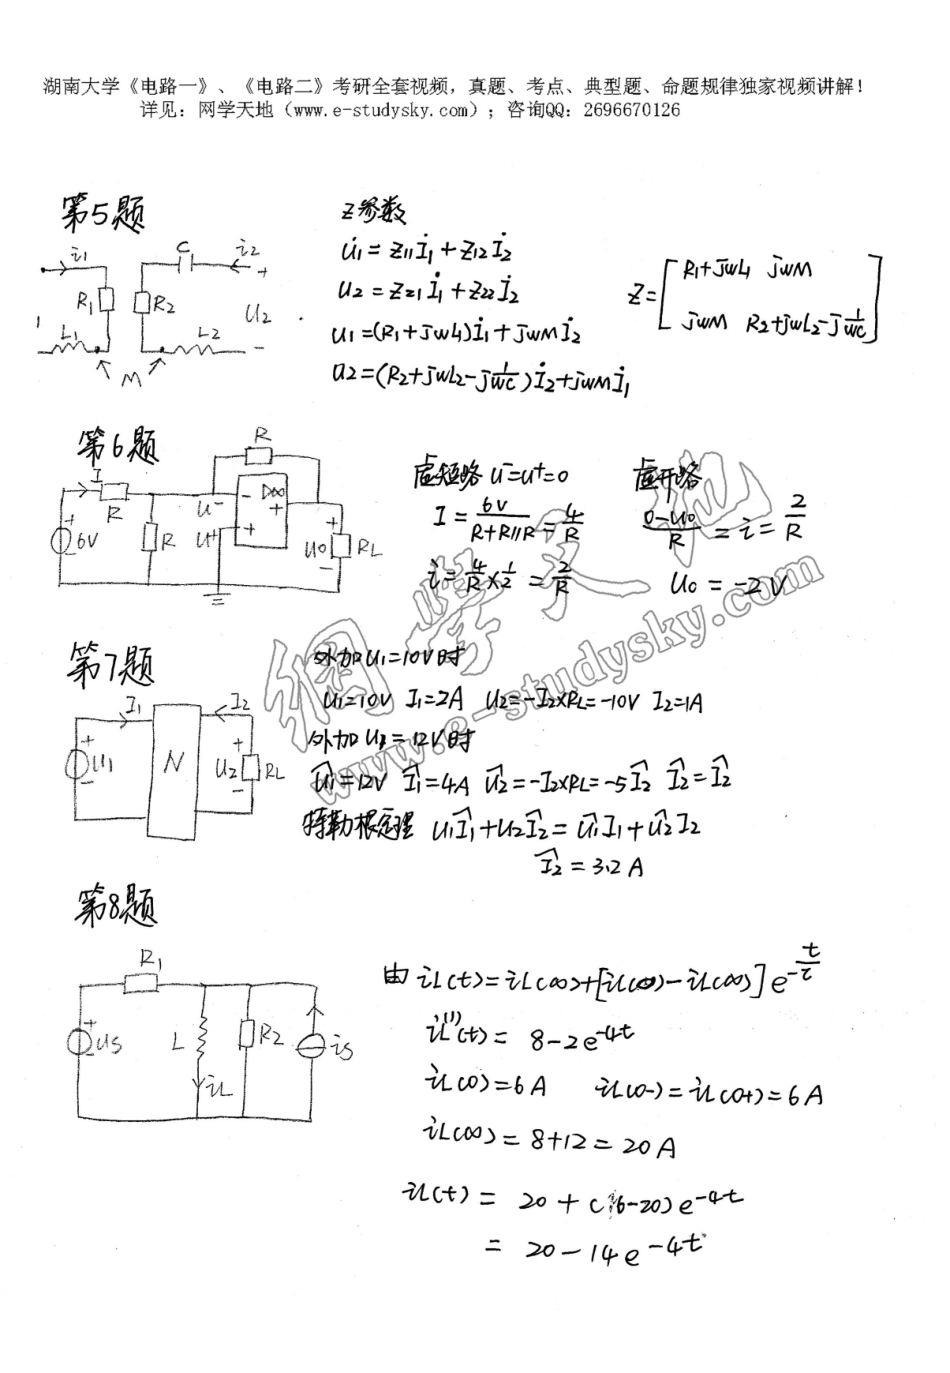 湖南大学《电路一》、《电路二》考研全套视频，真题、考点、典型题、命题规律独家视频讲解！
详见：网学天地（www.e-studysky.com）；咨询QQ：2696670126
第5题
i1 C i2 +
R1 R2 U2
L1 L2 -
M
Z参数
U̇1 = Z11İ1 + Z12İ2
U2 = Z21İ1 + Z22İ2
U1 = (R1+jwL1)İ1 + jwMİ2
U2 = (R2+jwL2-j1/wC)İ2 + jwMİ1
Z = [R1+jwL1 jwM
jwM R2+jwL2-j1/wC]
第6题
R
I
R - D∞
+ 6V - R U- U+ + + U0 - RL
虚短路 U-=U+=0
I = 6V/(R+R//R) = 4/R
i = 4/R × 1/2 = 2/R
虚开路
(0-U0)/R = i = 2/R
U0 = -2V
第7题
I1 I2
+ U1 - N + U2 - RL
外加U1=10V时
U1=10V I1=2A U2=-I2×RL=-10V I2=1A
外加U1=12V时
Û1=12V Î1=4A Û2=-I2×RL=-5Î2 Î2=Î2
特勒根定理 U1Î1+U2Î2=Û1I1+Û2I2
Î2=3.2A
网学天地
www.e-studysky.com
第8题
R1
+ US - L R2 iS
iL
由 iL(t)=iL(∞)+[iL(0)-iL(∞)]e^-t/τ
iL(1)(t) = 8-2e^-4t
iL(0)=6A iL(0-)=iL(0+)=6A
iL(∞)=8+12=20A
iL(t) = 20+(6-20)e^-4t
= 20-14e^-4t